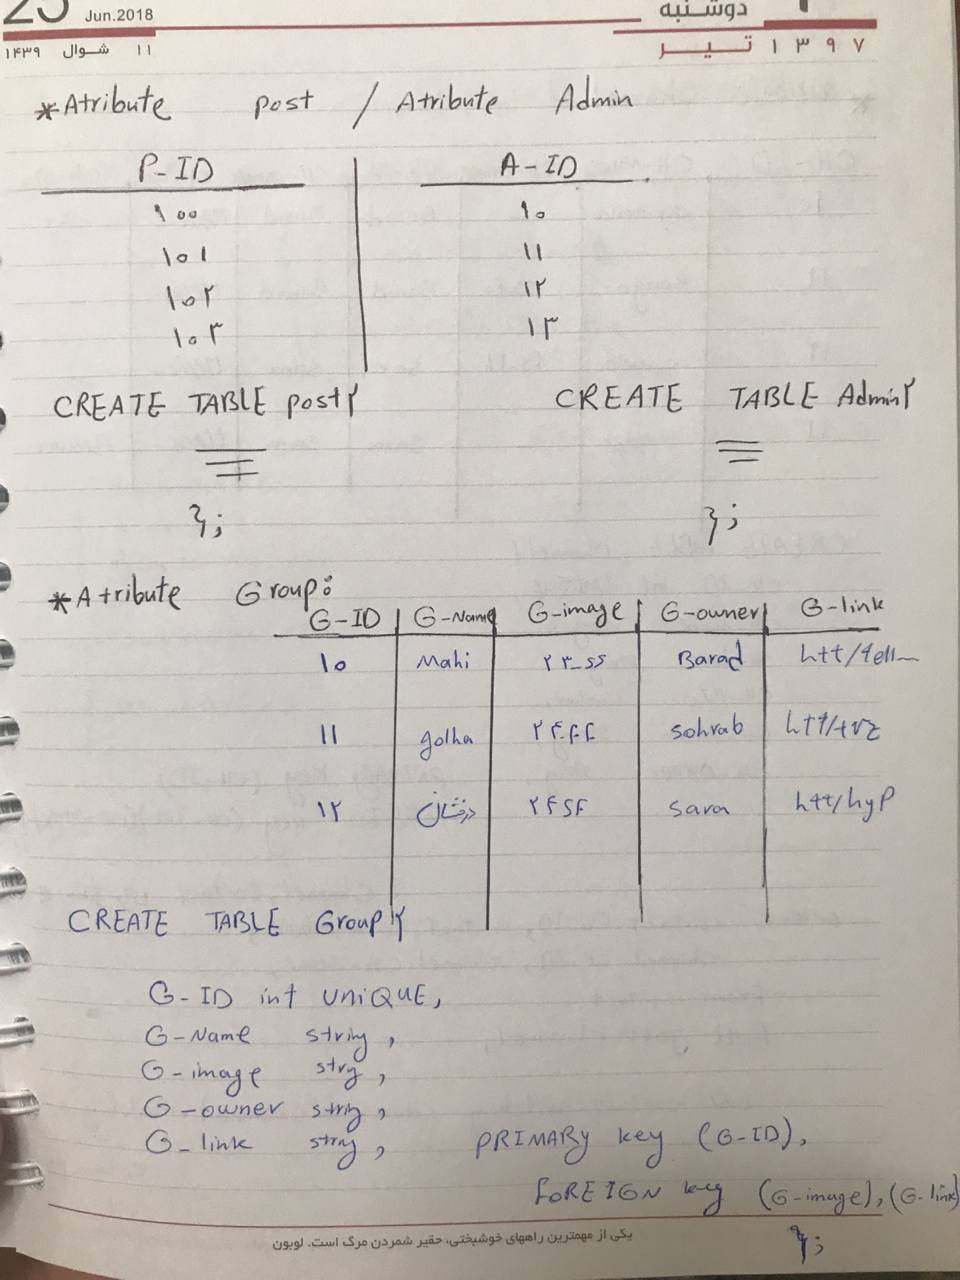 25 Jun.2018 دوشنبه ۴
۱۱ شوال ۱۴۳۹ ۱۳۹۷ تیر
*Atribute post / Atribute Admin
P-ID A-ID
۱۰۰ ۱۰
۱۰۱ ۱۱
۱۰۲ ۱۲
۱۰۳ ۱۳
CREATE TABLE post{ CREATE TABLE Admin{
}; };
*Atribute Group:
G-ID G-Name G-image G-owner G-link
۱۰ Mahi ۲۳_ss Barad htt/tell
۱۱ golha ۲۴.۴۴ sohrab htt/tvz
۱۲ درفشان ۲۴s۴ sara htt/hyp
CREATE TABLE Group{
G-ID int UNiQUE,
G-Name string,
G-image strg,
G-owner strig,
G-link strng, PRIMARY key (G-ID),
FOREIGN key (G-image),(G-link)
};
یکی از مهمترین راههای خوشبختی، حقیر شمردن مرگ است. لوبون